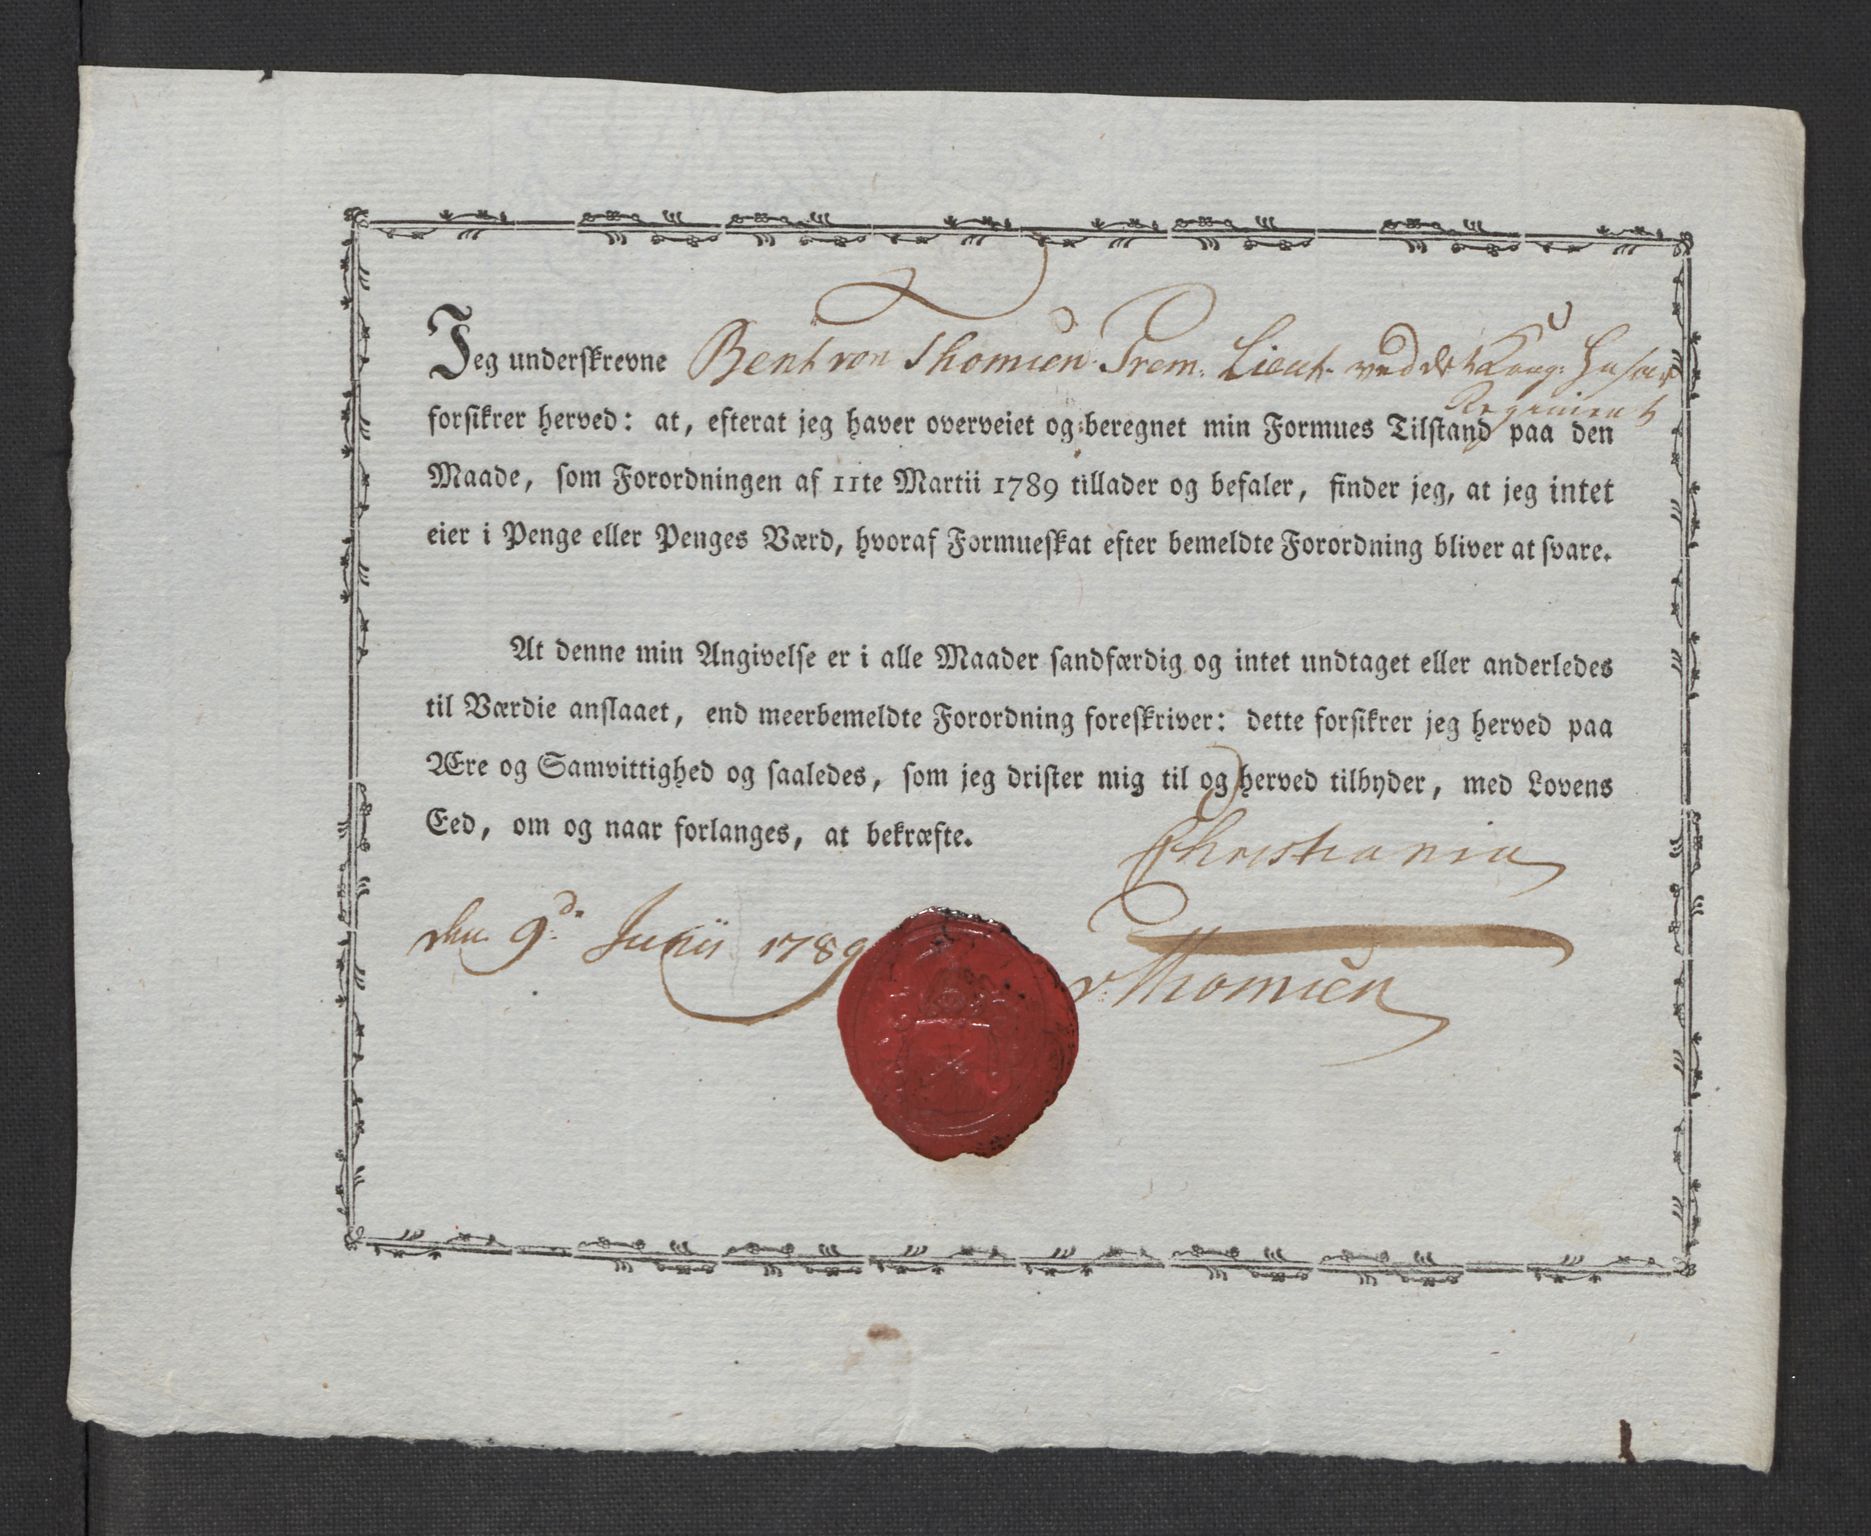 Jeg underskrevne Bent von Thomien Prem. Lieut. ved det Kong. Husar
Regiment
forsikrer herved: at, efterat jeg haver overveiet og beregnet min Formues Tilstand paa den
Maade, som Forordningen af 11te Martii 1789 tillader og befaler, finder jeg, at jeg intet
eier i Penge eller Penges Værd, hvoraf Formueskat efter bemeldte Forordning bliver at svare.
At denne min Angivelse er i alle Maader sandfærdig og intet undtaget eller anderledes
til Værdie anslaaet, end meerbemeldte Forordning foreskriver: dette forsikrer jeg herved paa
Ære og Samvittighed og saaledes, som jeg drister mig til og herved tilbyder, med Lovens
Eed, om og naar forlanges, at bekræfte.
Christiania
den 9d. Junii 1789
v: Thomien